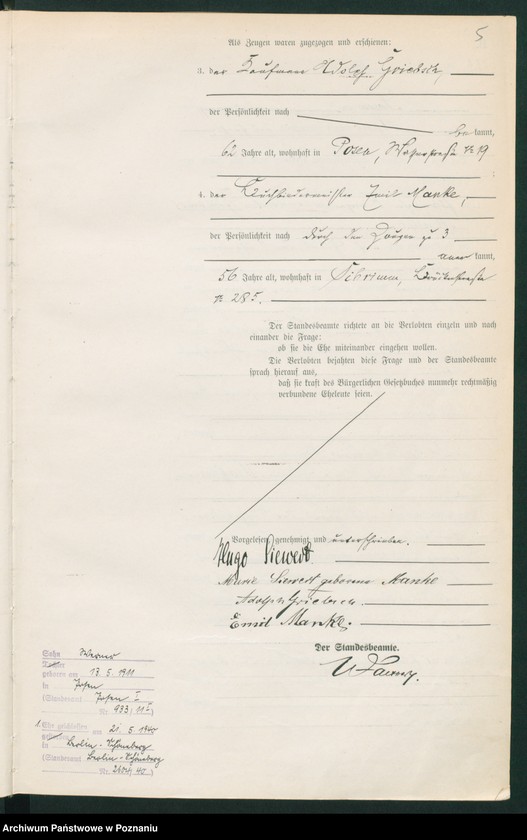 5
Als Zeugen waren zugezogen und erschienen:
3. der Kaufmann Adolph Griebsch,
der Persönlichkeit nach
bekannt,
62 Jahre alt, wohnhaft in Posen, № 19
;
4. der Buchbindermeister Emil Manke,
der Persönlichkeit nach durch den Zeugen zu 3
anerkannt,
56 Jahre alt, wohnhaft in
№ 285.
Der Standesbeamte richtete an die Verlobten einzeln und nach
einander die Frage:
ob sie die Ehe miteinander eingehen wollen.
Die Verlobten bejahten diese Frage und der Standesbeamte
sprach hierauf aus,
daß sie kraft des Bürgerlichen Gesetzbuches nunmehr rechtmäßig
verbundene Eheleute seien.
Vorgelesen, genehmigt und unterschrieben.
Hugo Siewert
Marie Siewert geborene Manke
Adolph Griebsch.
Emil Manke.
Der Standesbeamte.
Sohn Werner
geboren am 13.5.1911
in Posen
(Standesamt Posen I
Nr. 933/11)
1. Ehe geschlossen
am 21.5.1940
in Berlin-Schöneberg
(Standesamt Berlin-Schöneberg
Nr. /40)
Archiwum Państwowe w Poznaniu